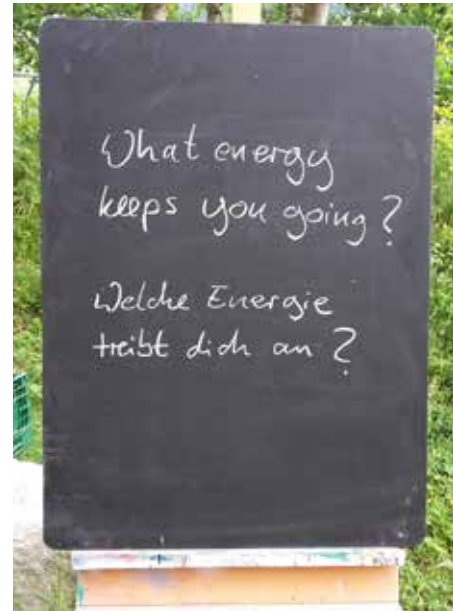 What energy
keeps you going?
Welche Energie
treibt dich an?